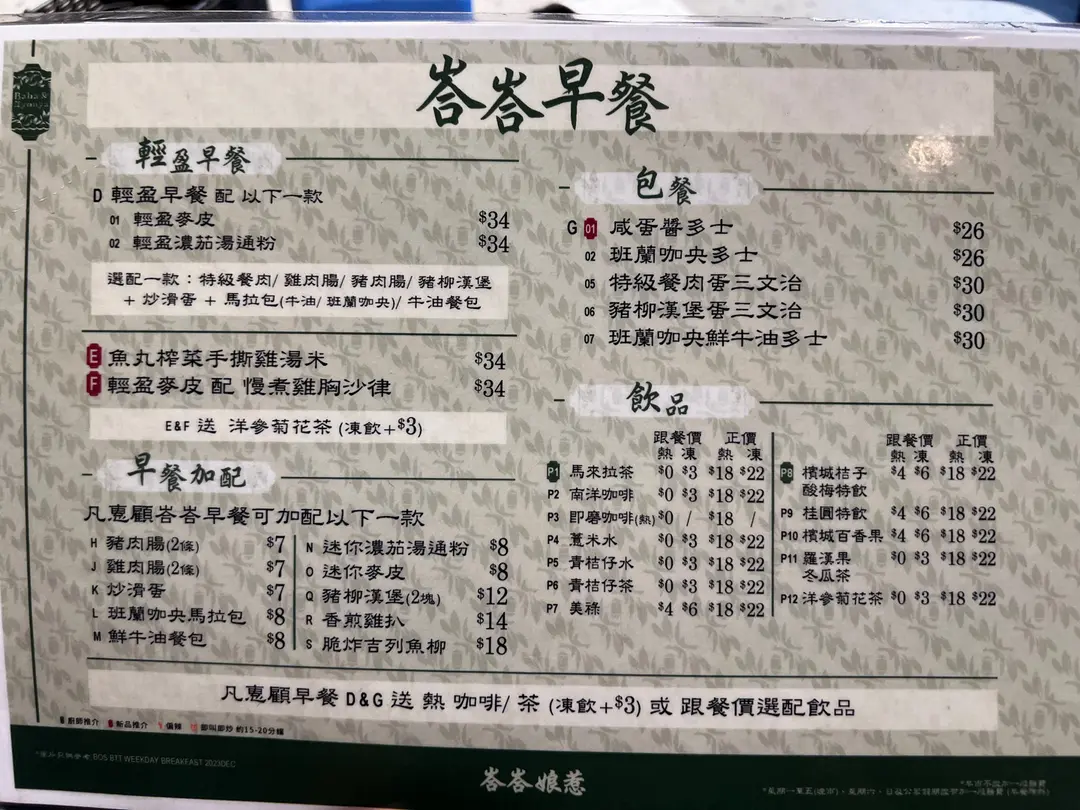 Baba & Nyonya
峇峇早餐
輕盈早餐
D 輕盈早餐 配 以下一款
01 輕盈麥皮 $34
02 輕盈濃茄湯通粉 $34
選配一款：特級餐肉/ 雞肉腸/ 豬肉腸/ 豬柳漢堡
+ 炒滑蛋 + 馬拉包(牛油/ 班蘭咖央)/ 牛油餐包
E 魚丸榨菜手撕雞湯米 $34
F 輕盈麥皮 配 慢煮雞胸沙律 $34
E&F 送 洋參菊花茶 (凍飲+$3)
早餐加配
凡惠顧峇峇早餐可加配以下一款
H 豬肉腸(2條) $7
J 雞肉腸(2條) $7
K 炒滑蛋 $7
L 班蘭咖央馬拉包 $8
M 鮮牛油餐包 $8
N 迷你濃茄湯通粉 $8
O 迷你麥皮 $8
Q 豬柳漢堡(2塊) $12
R 香煎雞扒 $14
S 脆炸吉列魚柳 $18
包餐
G 01 咸蛋醬多士 $26
02 班蘭咖央多士 $26
05 特級餐肉蛋三文治 $30
06 豬柳漢堡蛋三文治 $30
07 班蘭咖央鮮牛油多士 $30
飲品
跟餐價 正價
熱 凍 熱 凍
P1 馬來拉茶 $0 $3 $18 $22
P2 南洋咖啡 $0 $3 $18 $22
P3 即磨咖啡(熱) $0 / $18 /
P4 薏米水 $0 $3 $18 $22
P5 青桔仔水 $0 $3 $18 $22
P6 青桔仔茶 $0 $3 $18 $22
P7 美祿 $4 $6 $18 $22
跟餐價 正價
熱 凍 熱 凍
P8 檳城桔子 $4 $6 $18 $22
酸梅特飲
P9 桂圓特飲 $4 $6 $18 $22
P10 檳城百香果 $4 $6 $18 $22
P11 羅漢果 $0 $3 $18 $22
冬瓜茶
P12 洋參菊花茶 $0 $3 $18 $22
凡惠顧早餐 D&G 送 熱 咖啡/ 茶 (凍飲+$3) 或 跟餐價選配飲品
廚師推介 新品推介 偏辣 即叫即炒 約15-20分鐘
BOS BTT WEEKDAY BREAKFAST 2023DEC
峇峇娘惹